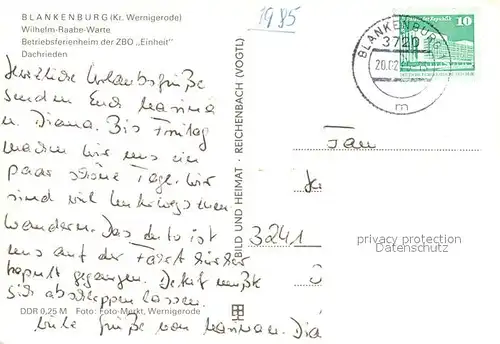 BLANKENBURG (Kr. Wernigerode)
Wilhelm-Raabe-Warte
Betriebsferienheim der ZBO „Einheit"
Dachrieden
1985
BLANKENBURG
3720
20.02
m
10
Herzliche Urlaubsgrüße
senden Euch Marina
u. Diana. Bis Freitag
machen wir uns ein
paar schöne Tage. Wir
sind viel unterwegs zum
Wandern. Das Auto ist
uns auf der Fahrt hierher
kaputt gegangen. Detlef mußte
sich abschleppen lassen.
viele Grüße von Marina u. Dia
BILD UND HEIMAT · REICHENBACH (VOGTL)
Fam
3241
privacy protection
VEDAMOL.COM
DDR 0,25 M Foto: Foto-Merkt, Wernigerode